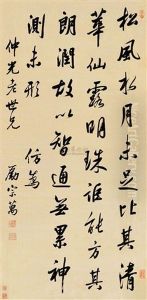 松風水月未足比其清
華仙露明珠詎能方其
朗潤故以智通無累神
測未形
仲光老世兄
勵宗萬